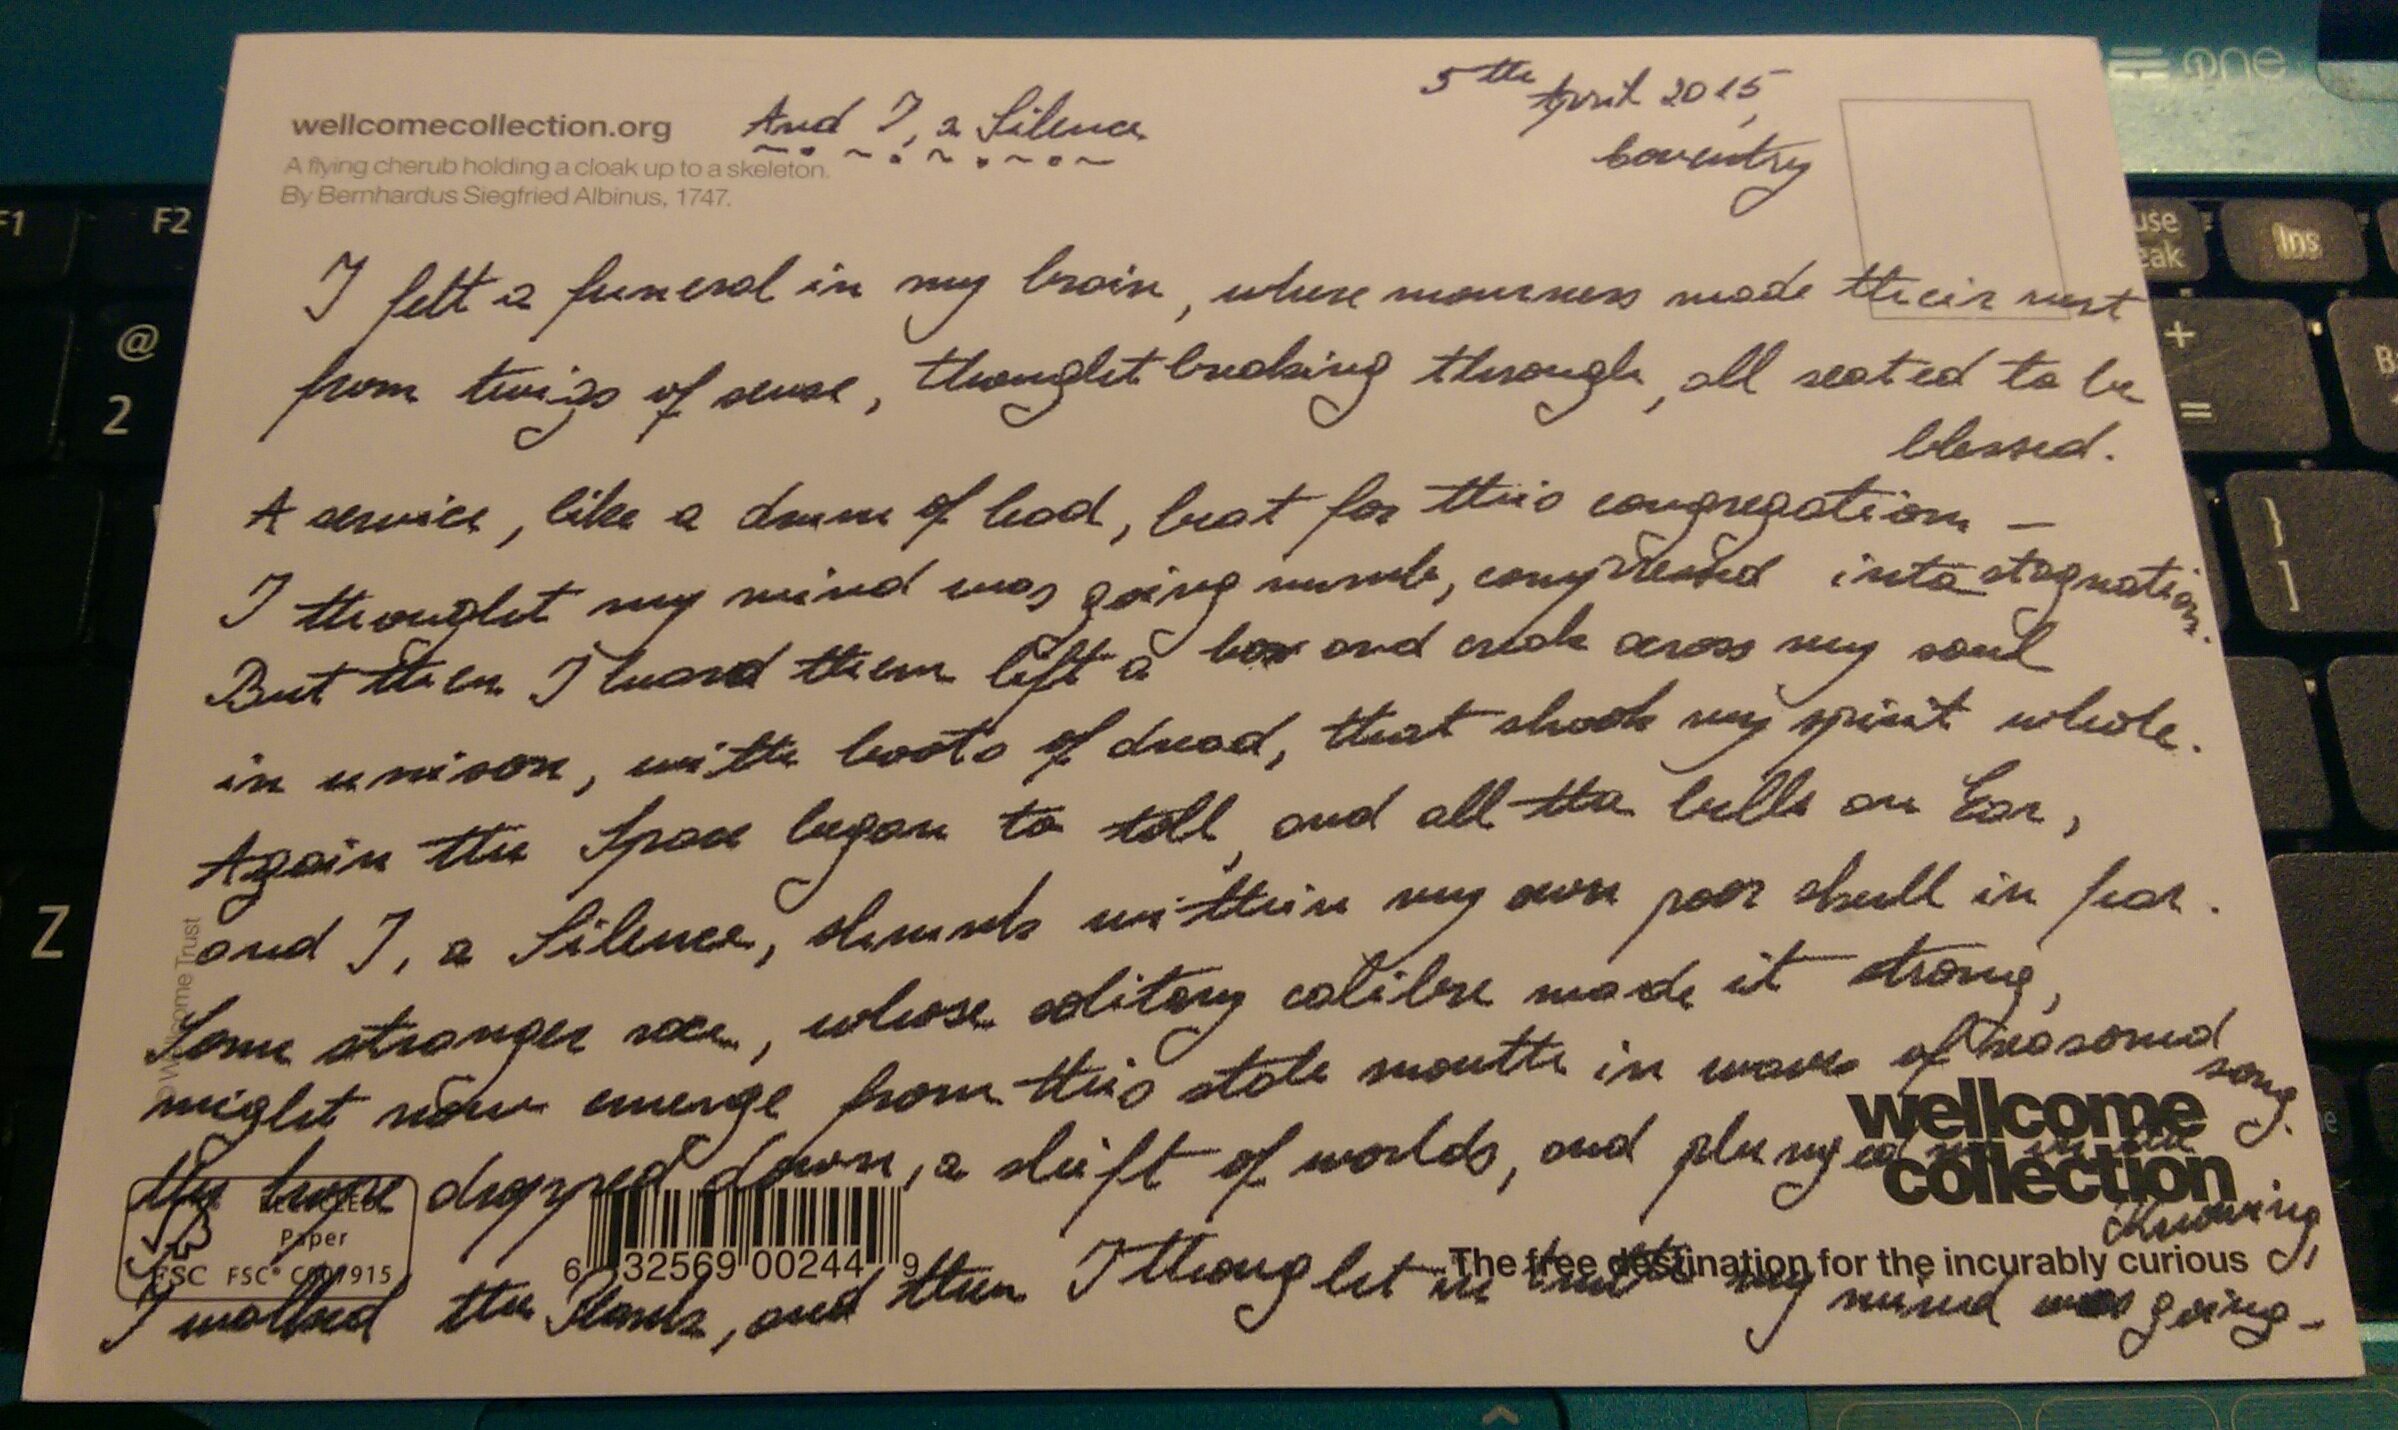 one
F1
F2
@
2
Z
use
eak
Ins
+
=
}
]
wellcomecollection.org
A flying cherub holding a cloak up to a skeleton.
By Bernhardus Siegfried Albinus, 1747.
And I, a Silence
5th April 2015,
Coventry
I felt a funeral in my brain, where mourners made their nest
from twigs of sense, thought breaking through, all seated to be
blessed.
A service, like a drum of lead, beat for this congregation –
I thought my mind was going numb, compressed into stagnation.
But then I heard them lift a box and creak across my soul
in unison, with boots of dread, that shook my spirit whole.
Again the Space began to toll, and all the bells an Ear,
and I, a Silence, shrunk within my own poor skull in fear.
Some stranger race, whose solitary calibre made it strong,
might now emerge from this stale mouth in waves of reasoned
song.
The hope dropped down, a shift of worlds, and plunged me in
Knowing,
I walked the Plank, and then I thought in my mind was going –
© Wellcome Trust
RECYCLED
Paper
FSC FSC® C001915
6 32569 00244 9
wellcome
collection
The free destination for the incurably curious